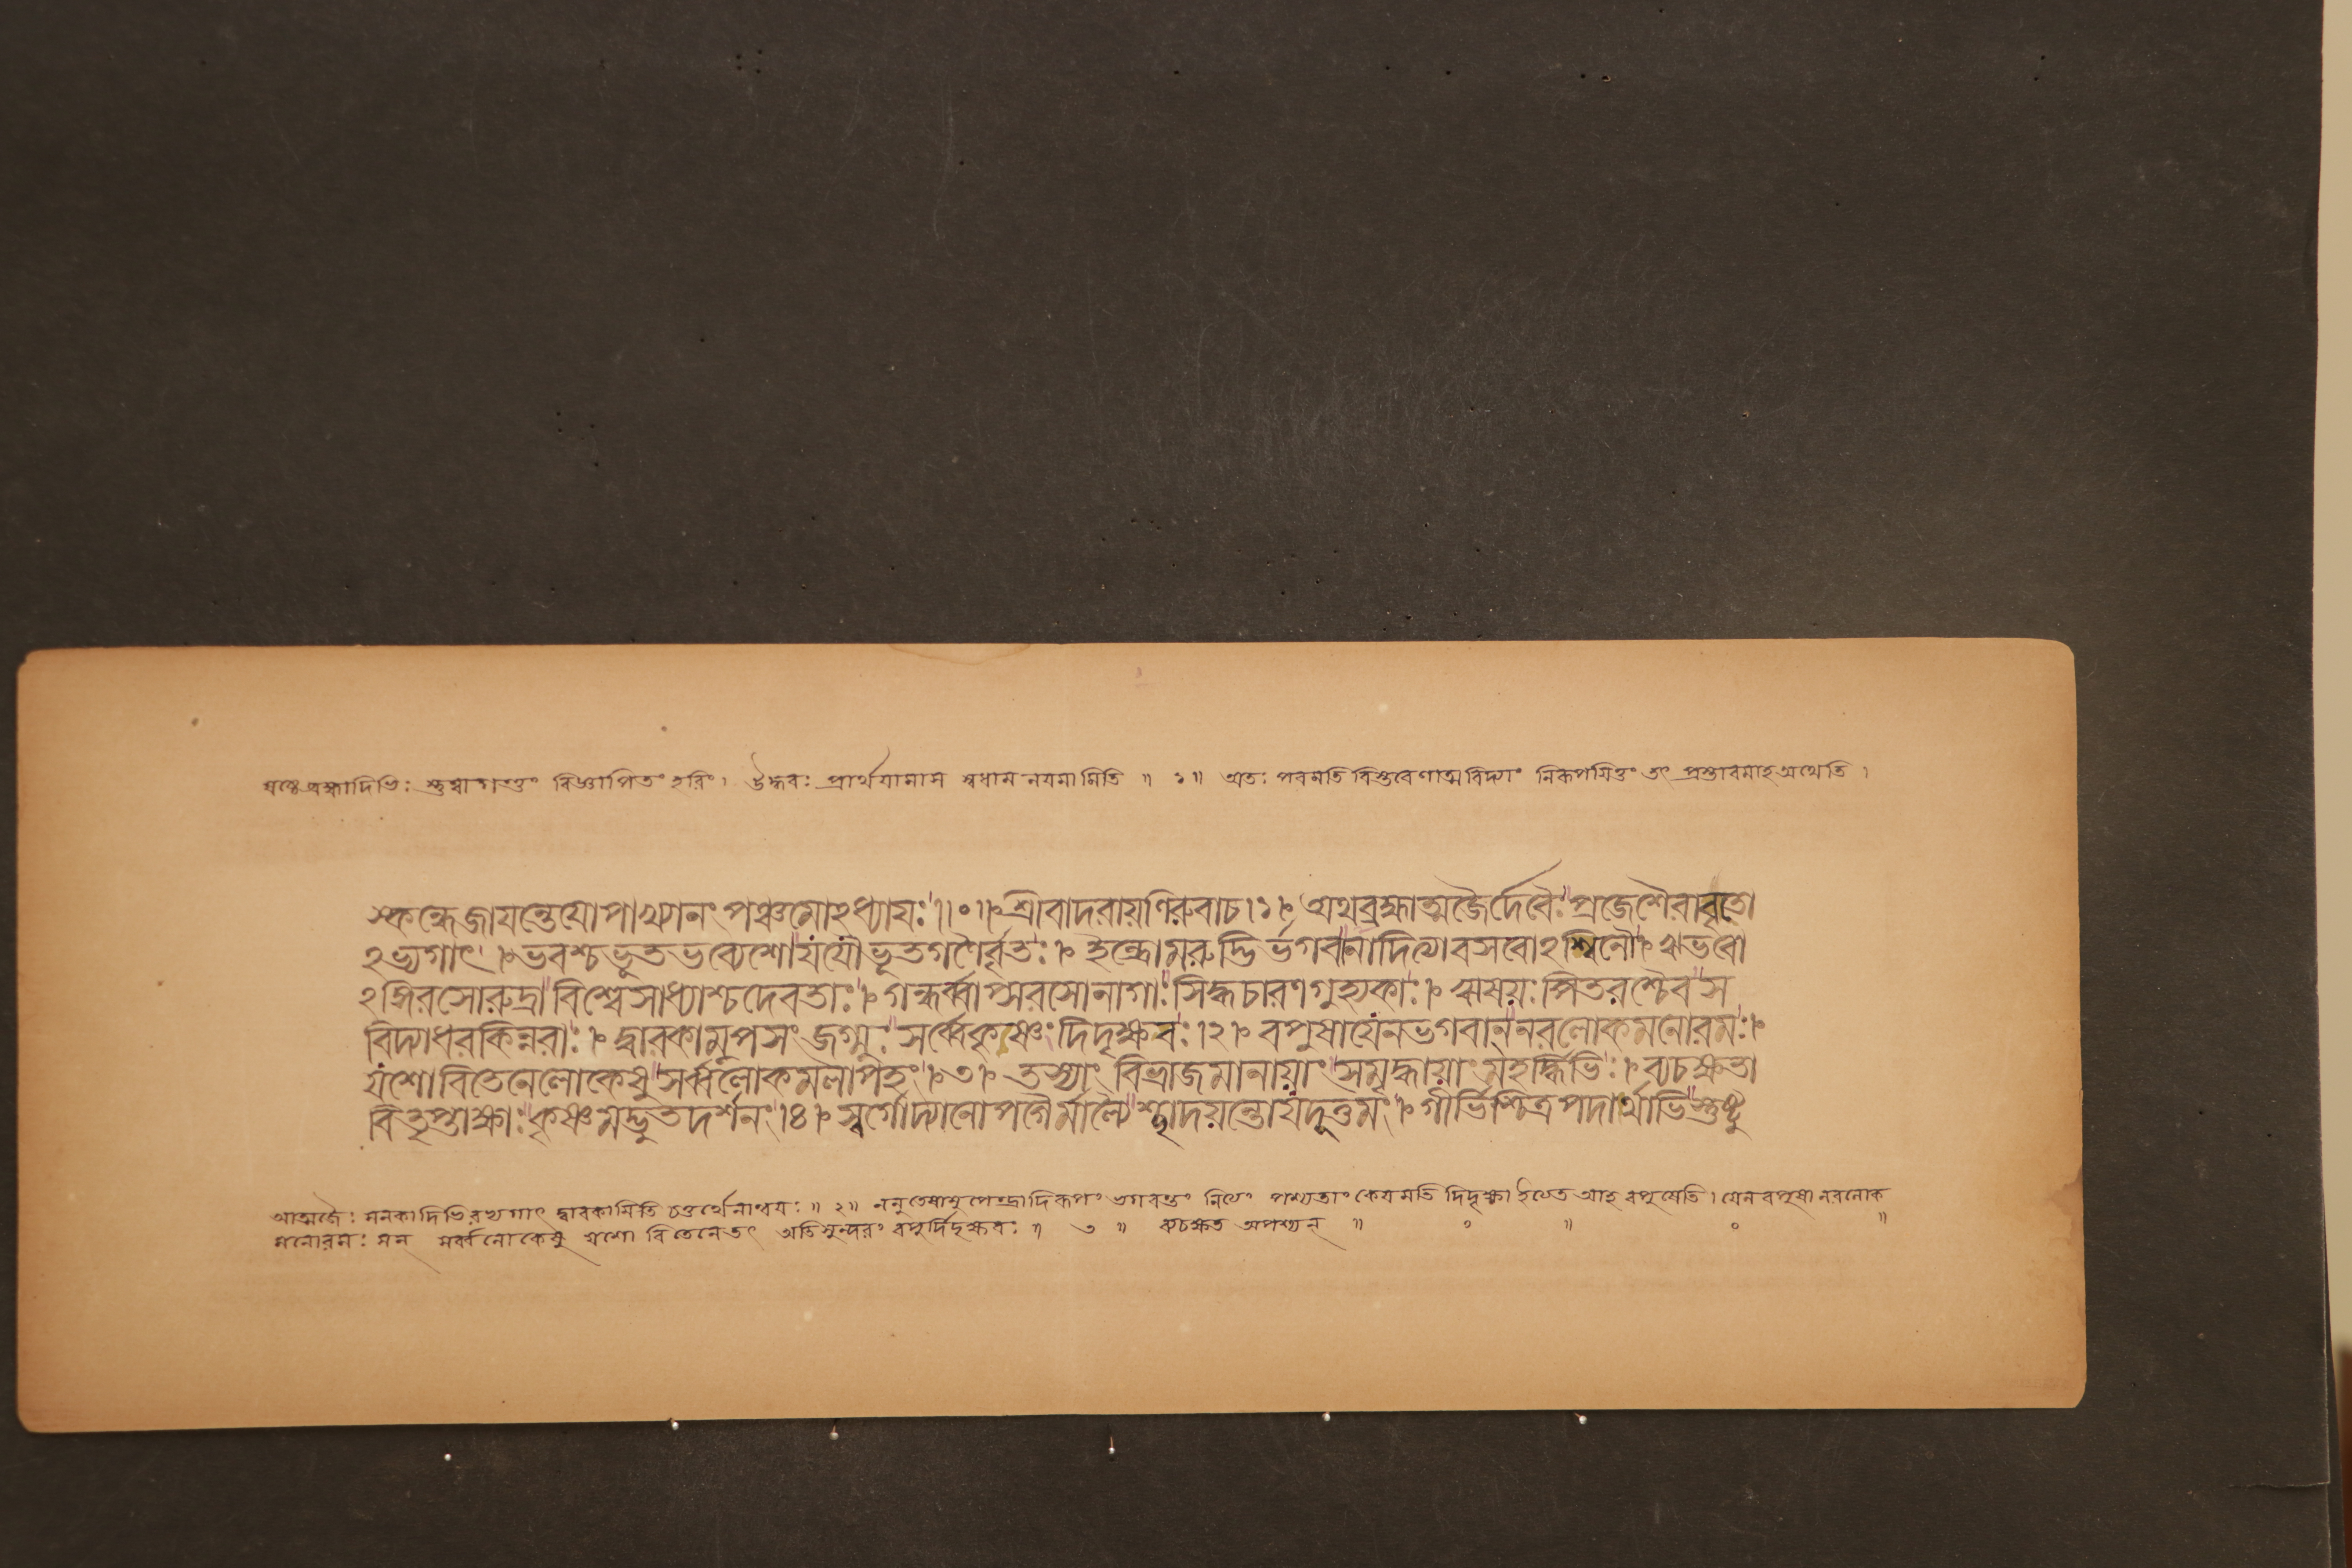 ষষ্ঠে ব্রহ্মাদিভিঃ স্তুত্বা গন্তুং বিজ্ঞাপিতং হরিং। উদ্ধবঃ প্রার্থয়ামাস স্বধাম নয়মামিতি ॥ ১ ॥ অতঃ পরমতি বিস্তরেণাত্মবিদ্যাং নিরূপয়িতুং তৎ প্রস্তাবমাহ অথেতি।
স্কন্ধেজায়ন্তেয়োপাখ্যানং পঞ্চমোঽধ্যায়ঃ॥০॥শ্রীবাদরায়ণিরুবাচ।১। অথব্রহ্মাত্মজৈর্দেবৈঃ প্রজেশৈরাবৃতো
ঽভ্যগাৎ।ভবশ্চভূতভব্যেশোযযৌভূতগণৈর্বৃতঃ। ইন্দ্রোমরুদ্ভির্ভগবানাদিত্যাবসবোঽশ্বিনৌ। ঋভবো
ঽঙ্গিরসোরুদ্রা বিশ্বেসাধ্যাশ্চদেবতাঃ। গন্ধর্ব্বাপ্সরসোনাগাঃ সিদ্ধচারণগুহ্যকাঃ। ঋষয়ঃ পিতরশ্চৈব স
বিদ্যাধরকিন্নরাঃ। দ্বারকামুপসংজগ্মুঃ সর্ব্বেকৃষ্ণং দিদৃক্ষবঃ।২। বপুষাযেনভগবান্নরলোকমনোরমঃ।
যশোবিতেনেলোকেষু সর্ব্বলোকমলাপহং।৩। তস্যাং বিভ্রাজমানায়াং সমৃদ্ধায়াং মহর্দ্ধিভিঃ। ব্যচক্ষতা
বিতৃপ্তাক্ষাঃ কৃষ্ণমদ্ভুতদর্শনং।৪। স্বর্গোদ্যানোপগৈর্মাল্যৈ শ্ছাদয়ন্তোযদূত্তমং। গীর্ভিশ্চিত্রপদার্থাভিস্তুষ্টু
আত্মজৈঃ সনকাদিভিরভ্যগাৎ দ্বারকামিতি চতুর্থেনান্বয়ঃ ॥ ২ ॥ ননু তেষামুপেন্দ্রাদিরূপং ভগবন্তং নিত্যং পশ্যতাং কেয়মতি দিদৃক্ষা ইত্যেত আহ বপুষেতি। যেন বপুষা নরলোক
মনোরমঃ সন্ সর্ব্বলোকেষু যশো বিতেনে তৎ অতিসুন্দরং বপুর্দিদৃক্ষবঃ ॥ ৩ ॥ ব্যচক্ষত অপশ্যন্ ॥ ০ ॥ ০ ॥